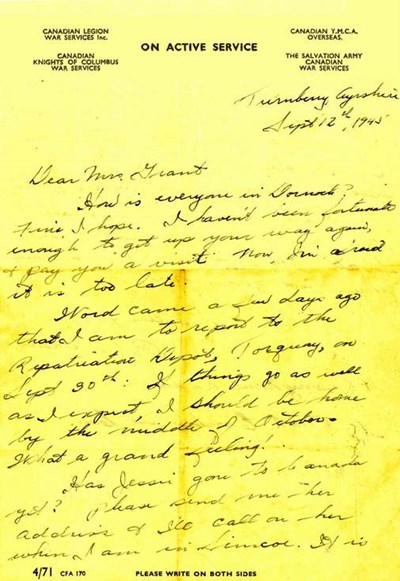 CANADIAN LEGION
WAR SERVICES Inc.
CANADIAN
KNIGHTS OF COLUMBUS
WAR SERVICES
ON ACTIVE SERVICE
CANADIAN Y.M.C.A.
OVERSEAS.
THE SALVATION ARMY
CANADIAN
WAR SERVICES
Turnberry Ayrshire
Sept 12th, 1945
Dear Mrs. Grant
How is everyone in Dornoch?
Fine, I hope. I haven't been fortunate
enough to get up your way again,
& pay you a visit. Now, I'm afraid
it is too late.
Word came a few days ago
that I am to report to the
Repatriation Depot, Torquay, on
Sept 30th. If things go as well
as I expect, I should be home
by the middle of October.
What a grand feeling!
Has Jessie gone to Canada
yet? Please send me her
address & I'll call on her
when I am in Simcoe. It is
4/71 CFA 170
PLEASE WRITE ON BOTH SIDES